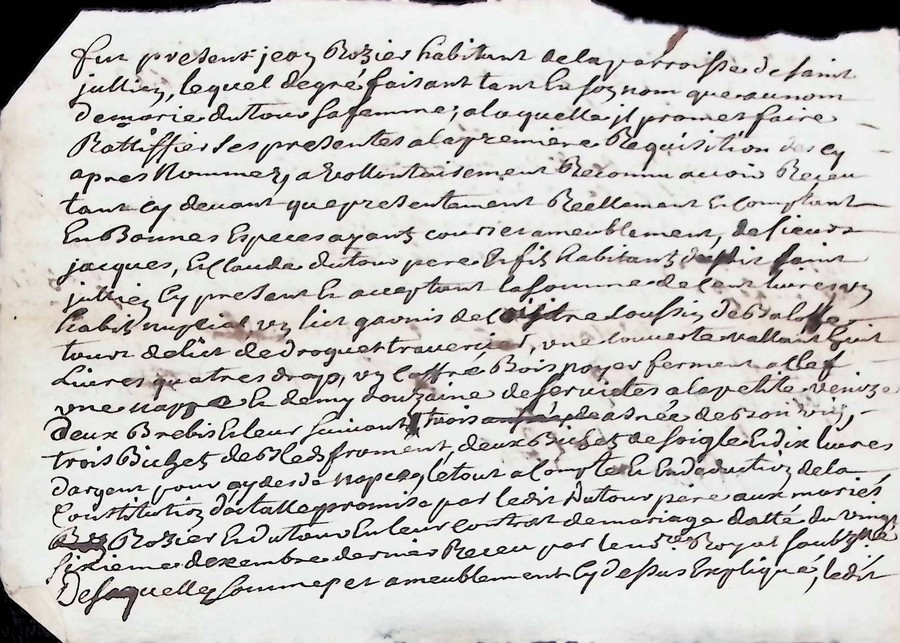 fut present jean Rozier habitant de la parroisse de saint
jullien, lequel de gré faisant tant en son nom que au nom
de marie dutour sa femme, a laquelle il promet faire
Rattiffier ses presentes a la premiere Requisition des cy
apres Nommez, a vollontairement Reconnu avoir Receu
tant cy devant que presentement Reellement En Comptant
En Bonnes Especes ayant cours et ameublement, de sieurs
jacques, Et Claude dutour pere Et fils habitantz dudit saint
jullien Cy present Et acceptant la somme de cent livres un
habit nuptial un lict garnis de Coussin de
tour de lict de droguet traversier, une couverte vallant huit
Livres quatres drap, un Coffre Bois noyer ferment a Clef
une nappe Et demy douzaine de serviettes a la petite venize
deux Brebis Et leur suivant trois asnée de bon vin,
trois Bichet de Bled froment, deux Bichet de soigle Et dix livres
d'argent pour aydes de nopces, le tout a Compte Et En deduction de la
Constitution dotalle promise par ledit Dutour pere aux mariés
Rozier Et dutour En leur contrat de mariage datté du vingt
sixieme dexembre dernier Receu par le no.re Royal soubz.né
Desquelles sommes et ameublement Cy dessus Expliqué, ledit